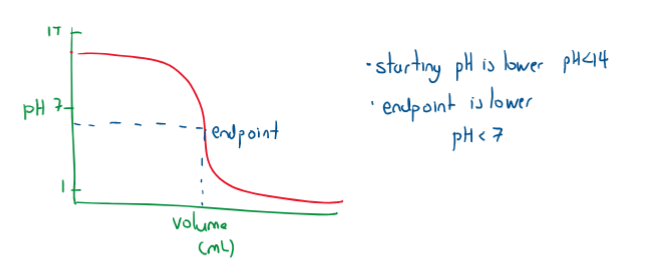 14
pH 7
1
endpoint
volume
(mL)
· starting pH is lower pH<14
· endpoint is lower
pH < 7